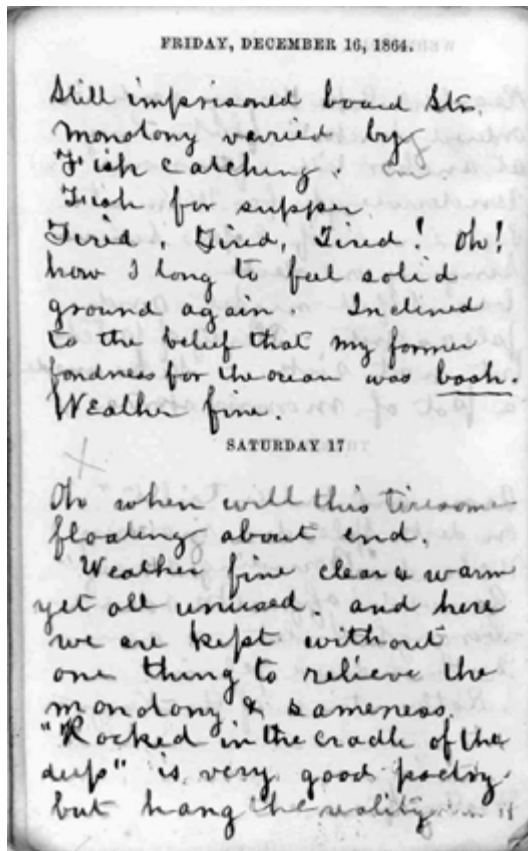 FRIDAY, DECEMBER 16, 1864.
Still imprisoned board Str.
Monotony varied by
Fish catching.
Fish for supper
Tired, Tired, Tired! Oh!
how I long to feel solid
ground again. Inclined
to the belief that my former
fondness for the ocean was bosh.
Weather fine.
SATURDAY 17
Oh when will this tiresome
floating about end.
Weather fine clear & warm
yet all unused. and here
we are kept without
one thing to relieve the
monotony & sameness.
"Rocked in the cradle of the
deep" is very good poetry
but hang the reality